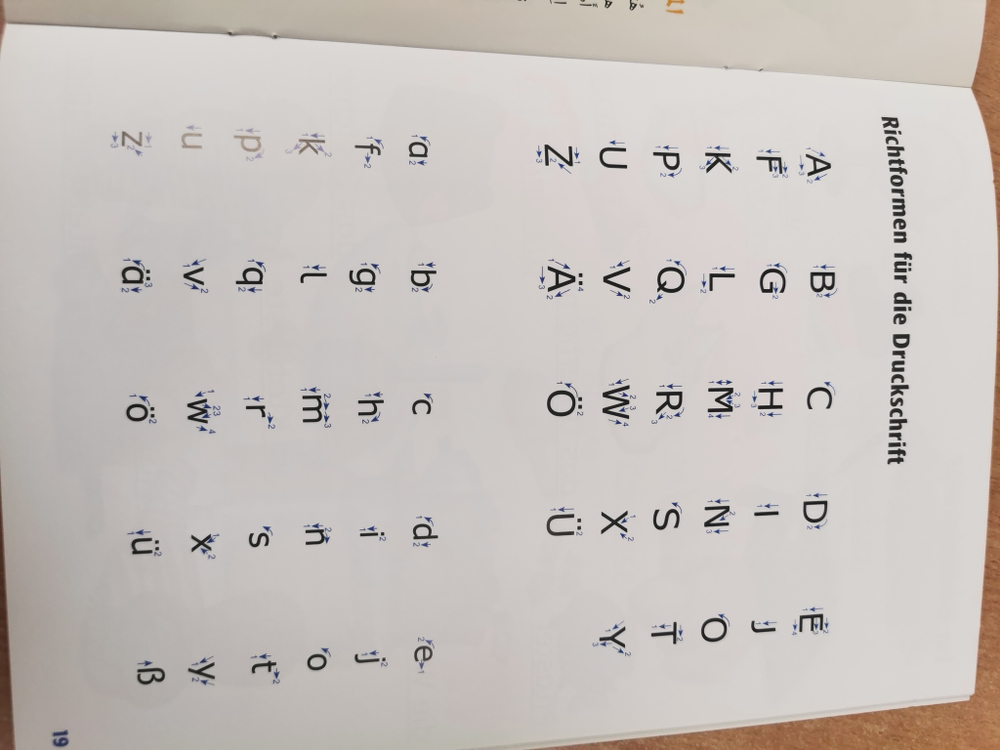 Richtformen für die Druckschrift
A B C D E
F G H I J
K L M N O
P Q R S T
U V W X Y
Z Ä Ö Ü
a b c d e
f g h i j
k l m n o
p q r s t
u v w x y
z ä ö ü ß
19